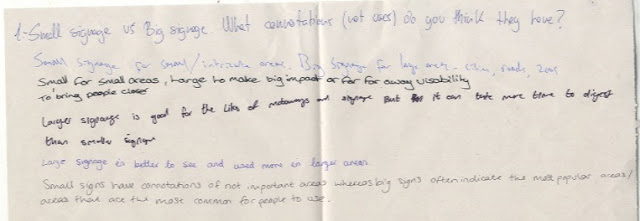 1-Small signage vs Big signage What connotations (not uses) do you think they have?
Small signage for small/intricate areas. Big signage for large areas - cities, roads, zoos
Small for small areas, Large to make big impact or for far away visability
To bring people closer
Larger signage is good for the likes of motorways and signage But it can take more time to digest
than smaller signage
Large signage is better to see and used more in larger areas.
Small signs have connotations of not important areas whereas big signs often indicate the most popular areas/
areas that are the most common for people to use.